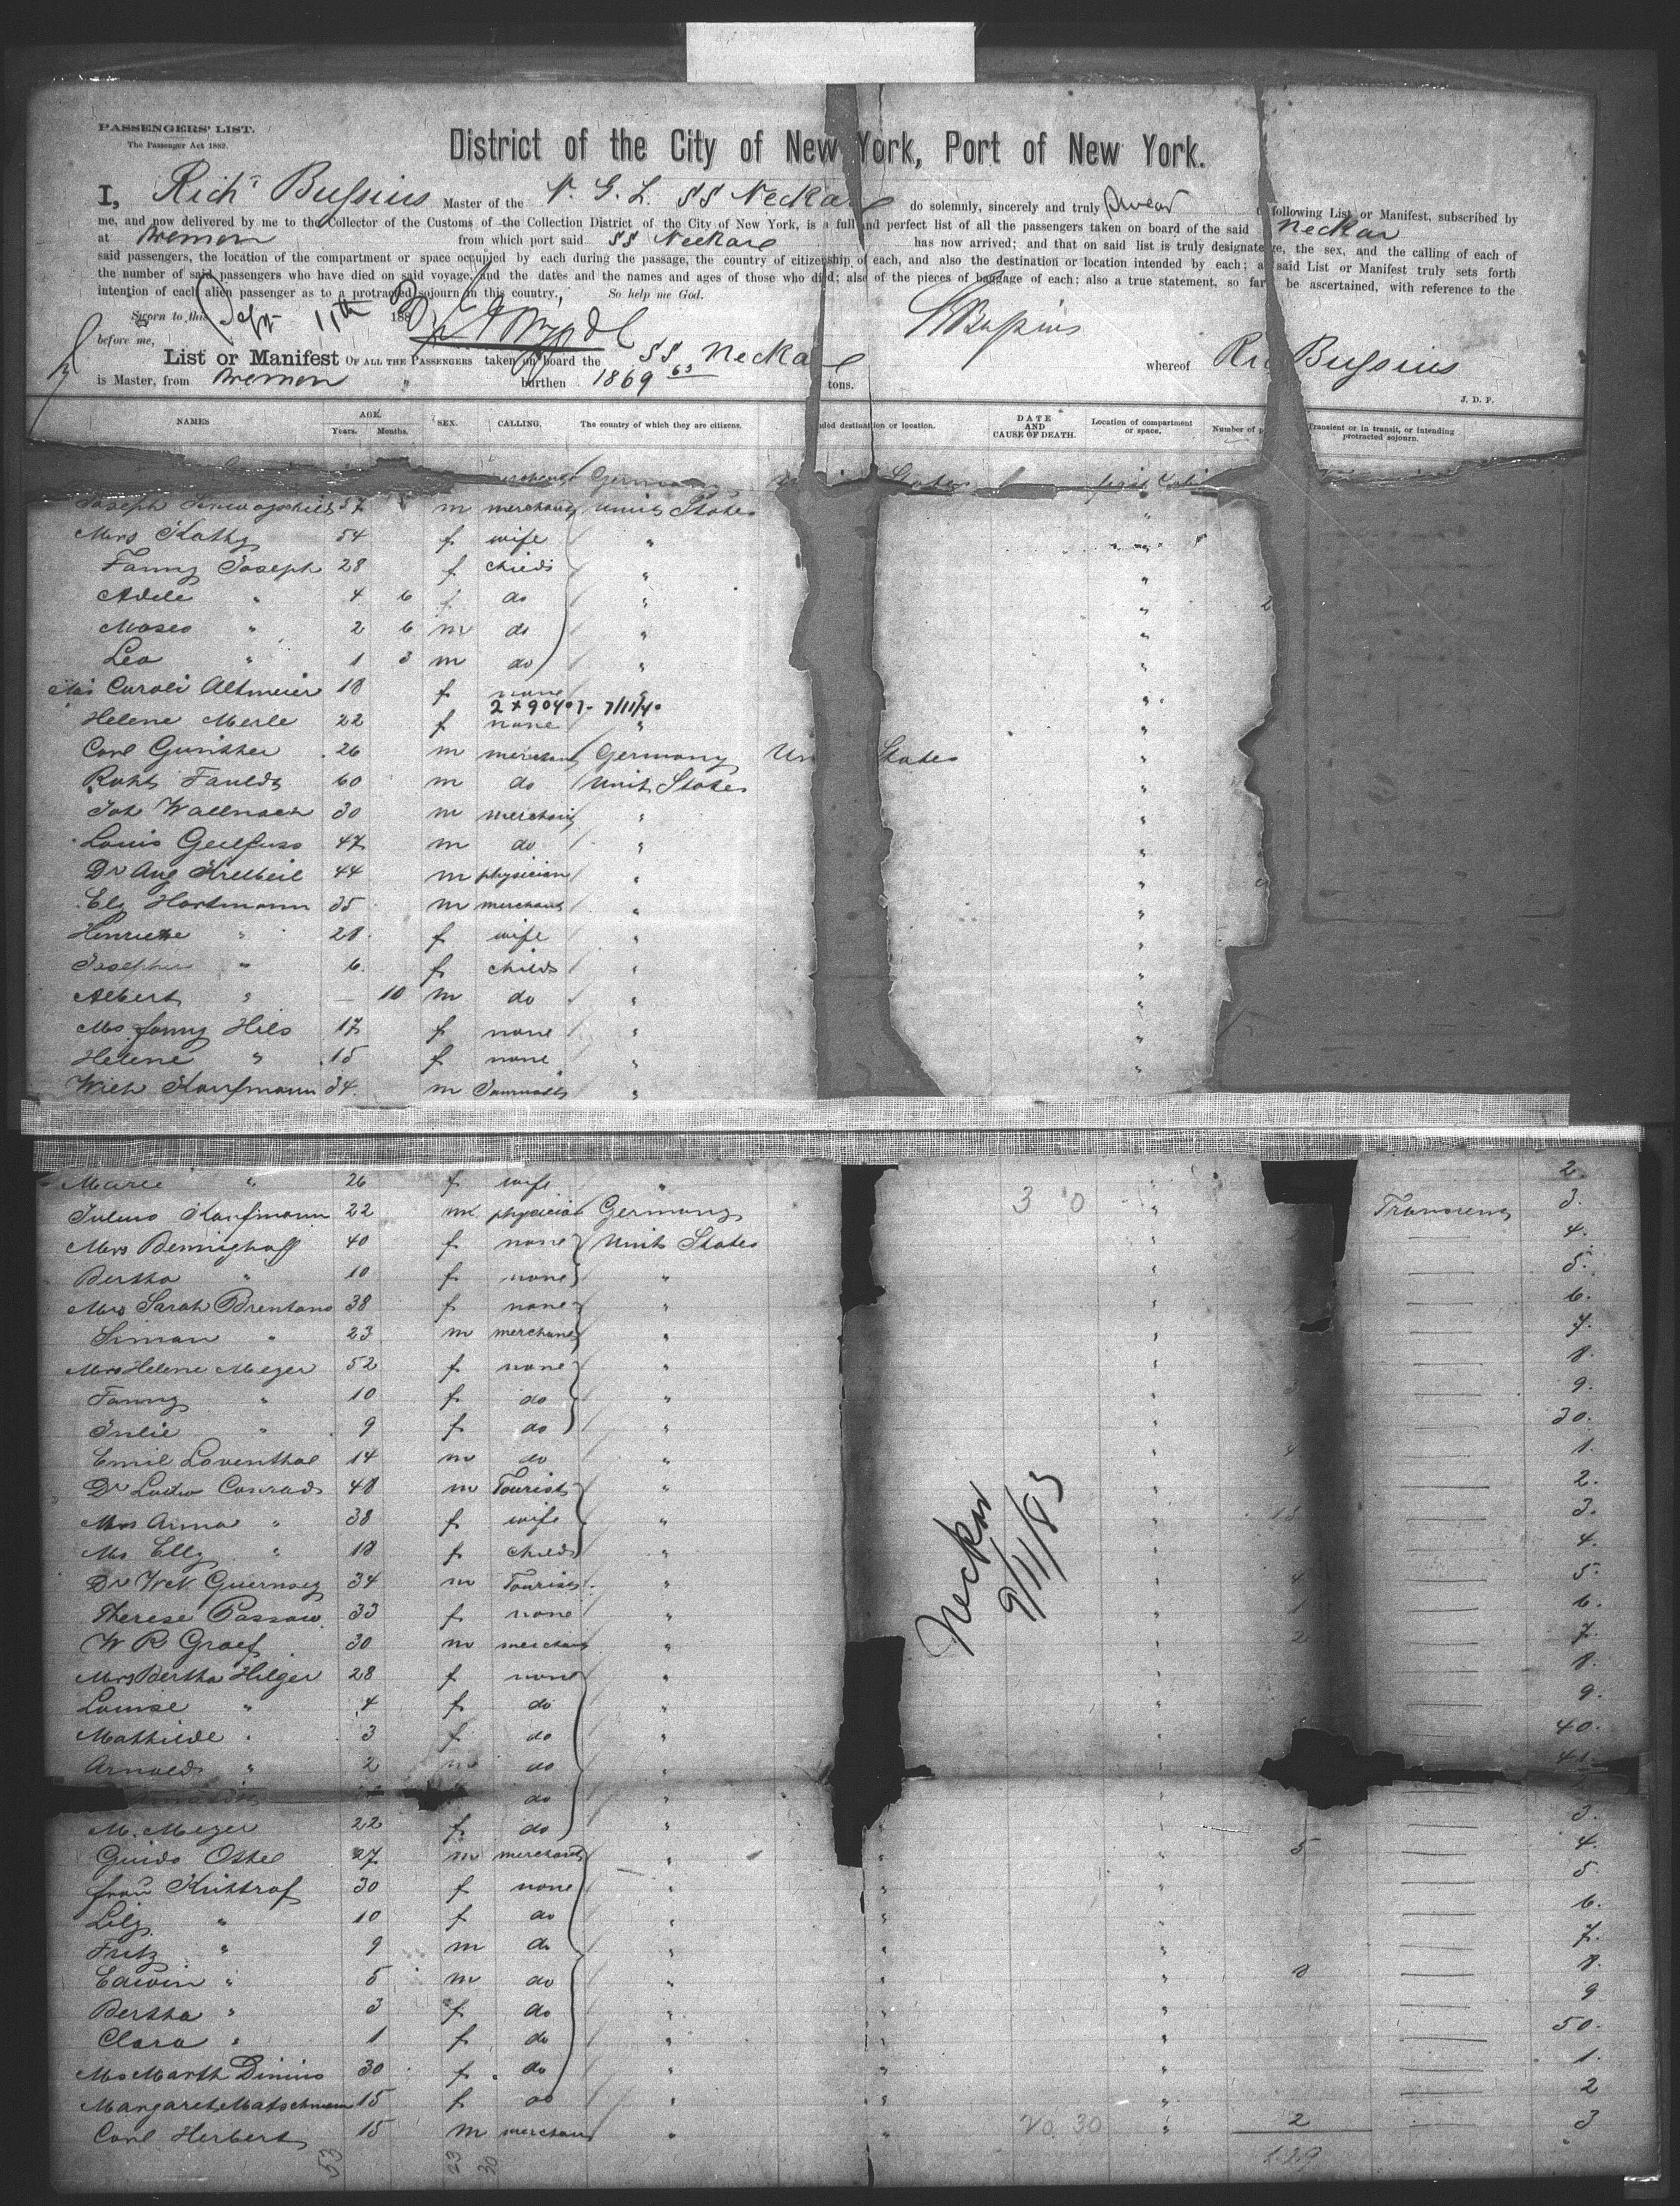 PASSENGERS' LIST.
The Passenger Act 1882.
District of the City of New York, Port of New York.
I, Richd Bussius Master of the N. G. L. SS Neckar do solemnly, sincerely and truly swear following List or Manifest, subscribed by
me, and now delivered by me to the Collector of the Customs of the Collection District of the City of New York, is a full and perfect list of all the passengers taken on board of the said Neckar
at Bremen from which port said SS Neckar has now arrived; and that on said list is truly designate ge, the sex, and the calling of each of
said passengers, the location of the compartment or space occupied by each during the passage, the country of citizenship of each, and also the destination or location intended by each; a said List or Manifest truly sets forth
the number of said passengers who have died on said voyage, and the dates and the names and ages of those who died; also of the pieces of baggage of each; also a true statement, so far be ascertained, with reference to the
intention of each alien passenger as to a protracted sojourn in this country. So help me God.
Sworn to this Sept 11th 1883 RBussius
before me,
List or Manifest OF ALL THE PASSENGERS taken on board the SS Neckar whereof Ric Bussius
is Master, from Bremen " burthen 1869 63 tons.
J. D. P.
NAMES AGE. Years. Months. SEX. CALLING. The country of which they are citizens. ded destination or location. DATE AND CAUSE OF DEATH. Location of compartment or space. Number of p Transient or in transit, or intending protracted sojourn.
Germany States first Cabi
Joseph 57 m merchant Unit States "
Mrs Kathy 54 f wife " "
Fanny Joseph 28 f child " "
Adele " 4 6 f do " " 2
Moses " 2 6 m do " "
Leo " 1 3 m do " "
Mss Caroli Altmeier 18 f none " "
2 x 90407- 7/11/40
Helene Merle 22 f none " "
Carl Gunther 26 m merchant Germany Un States "
Robt Faulds 60 m do Unit States "
Joh Wallnoch 30 m merchant " "
Louis Geilfuss 47 m do " "
Dr Aug Krelbeil 44 m physician " "
El Hartmann 35 m merchant " "
Henriette " 28 f wife " "
Josephine " 6 f child " "
Albert " — 10 m do " "
Mss fanny Hils 17 f none " "
Helene " 15 f none " "
Wilh Kaufmann 34 m " "
Marie " 26 f wife " " 2.
Julius Kaufmann 22 m physician Germany 30 " Transient 3.
Mrs Benninghoff 40 f none Unit States " — 4.
Bertha " 10 f none " " — 5.
Mrs Sarah Brentano 38 f none " " — 6.
Simon " 23 m merchant " " — 7.
Mrs Helene Meyer 52 f none " " — 8.
Fanny " 10 f do " " 3 — 9.
Julie " 9 f do " " — 30.
Emil Loventhal 14 m do " " 4 — 1.
Dr Ludw Conrad 48 m Tourist " " — 2.
Mrs Anna " 38 f wife " " 15 — 3.
Ms Elly " 18 f child " " — 4.
Dr W N Guernsey 34 m Tourist " " 4 — 5.
Therese Passow 33 f none " " 1 — 6.
W R Graef 30 m merchant " " 2 — 7.
Mrs Bertha Hilger 28 f none " " — 8.
Louise " 4 f do " " — 9.
Mathilde " 3 f do " " — 40.
Arnold " 2 m do " " 41.
do "
M. Meyer 22 f do " " " — 3.
Guido Osthel 27 m merchant " " " 5 — 4.
frau Knistraf 30 f none " " " — 5.
Lily " 10 f do " " " — 6.
Fritz " 9 m do " " " — 7.
Edwin " 5 m do " " " 8 — 8.
Bertha " 3 f do " " " — 9
Clara " 1 f do " " " — 50.
Ms Marth Dinius 30 f do " " " — 1.
Margareth Matschmann 15 f do " " " — 2
Carl Herbert 15 m merchant " " No. 30 " 2 — 3
53 23 30 129
Neckar
9/11/83